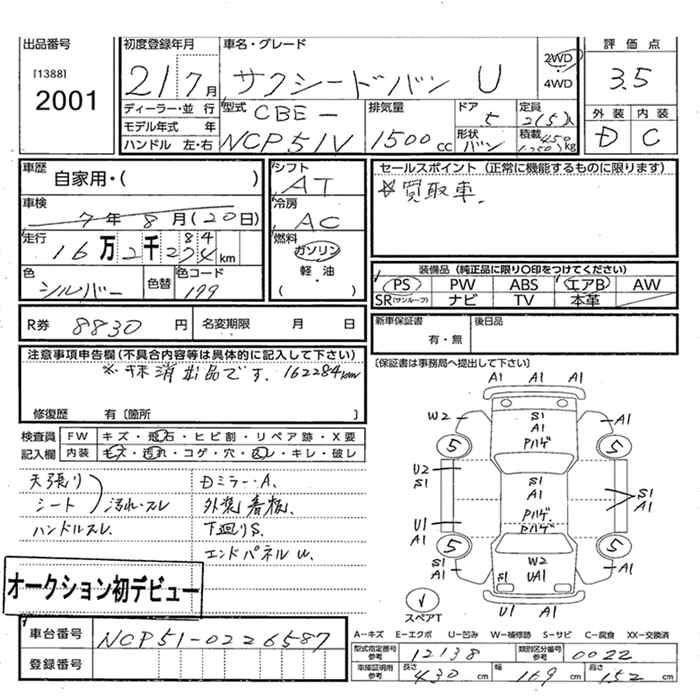 出品番号
[1388]
2001
初度登録年月
21 7月
車名・グレード
サクシードバン U
2WD
4WD
評価点
3.5
外装 内装
D C
ディーラー・並行
モデル年式 年
ハンドル 左・右
型式
CBE-
NCP51V
排気量
1500cc
ドア
5
形状
バン
定員
2(5)人
積載 450
kg
車歴
自家用・( )
シフト
AT
セールスポイント (正常に機能するものに限ります)
☆買取車.
車検
7年8月(20日)
冷房
AC
走行
16万2千284km
燃料
ガソリン
軽・油
( )
色
シルバー
色替
色コード
199
装備品 (純正品に限り〇印をつけてください)
PS PW ABS エアB AW
SR(サンルーフ) ナビ TV 本革
R券 8830円
名変期限 月 日
新車保証書
有・無
後日品
[保証書は事務局へ提出して下さい]
注意事項申告欄(不具合内容等は具体的に記入して下さい)
※抹消出品です. 162284km
修復歴 有〔箇所 〕
検査員 FW キズ・飛石・ヒビ割・リペア跡・X要
記入欄 内装 キズ・汚れ・コゲ・穴・スレ・キレ・破レ
天張り
シート
ハンドルスレ.
汚れ・スレ
Dミラー・A.
外装看板.
下廻りS.
エンドパネルU.
オークション初デビュー
車台番号 NCP51-0226587
登録番号
A1 A1
W2 S1 A1
A1
Pハゲ
5 5
U2 S1
S1
A1
S1
A1
Pハゲ
Pハゲ
U1
A1
5 5
S1
A1
W2
UA1
S1
S1
A1
U1 A1
スペアT
A-キズ E-エクボ U-凹み W-補修跡 S-サビ C-腐食 XX-交換済
型式指定番号 参考 12138
類別区分番号 参考 0022
車庫証明用 参考 長さ 430cm 幅 169cm 高さ 152cm